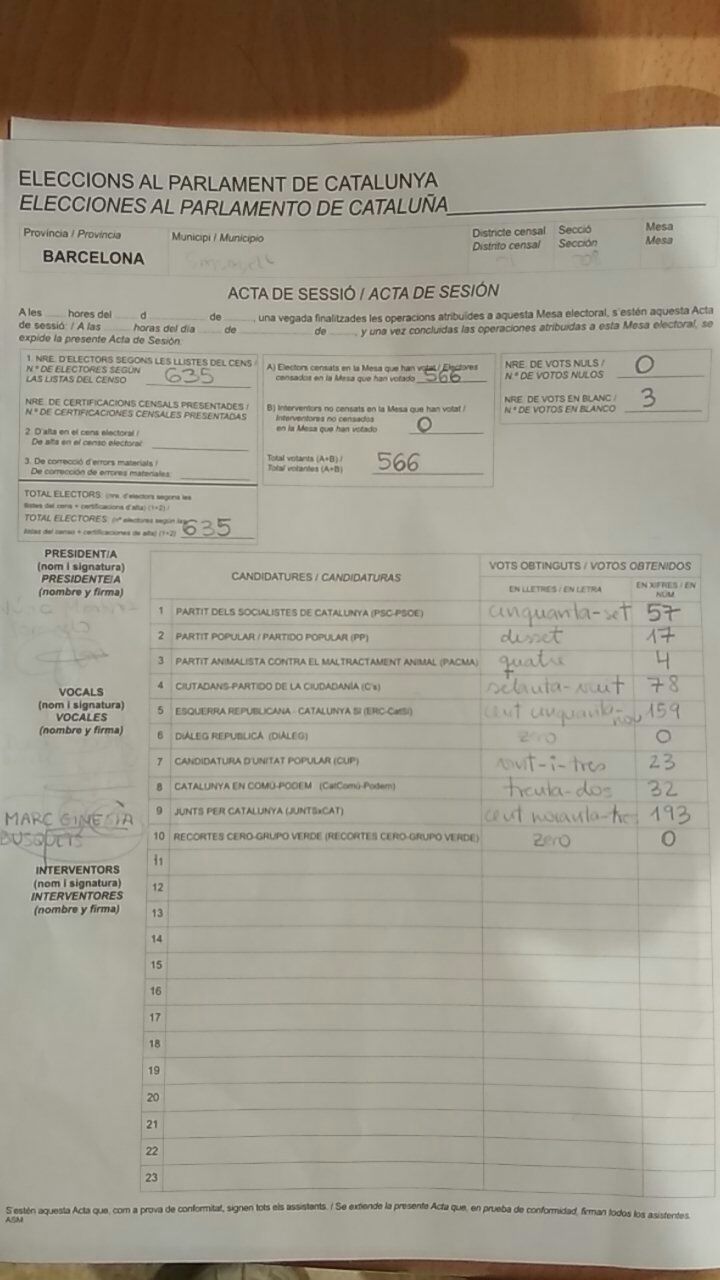 ELECCIONS AL PARLAMENT DE CATALUNYA
ELECCIONES AL PARLAMENTO DE CATALUÑA
Provincia / Provincia Municipi / Municipio Districte censal Secció Mesa
Distrito censal Sección Mesa
BARCELONA
ACTA DE SESSIÓ / ACTA DE SESIÓN
A les hores del d de , una vegada finalitzades les operacions atribuïdes a aquesta Mesa electoral, s'estén aquesta Acta
de sessió: / A las horas del día de de , y una vez concluidas las operaciones atribuidas a esta Mesa electoral, se
expide la presente Acta de Sesión:
1. NRE. D'ELECTORS SEGONS LES LLISTES DEL CENS /
N.º DE ELECTORES SEGÚN
LAS LISTAS DEL CENSO 635
NRE. DE CERTIFICACIONS CENSALS PRESENTADES /
N.º DE CERTIFICACIONES CENSALES PRESENTADAS
2. D'alta en el cens electoral /
De alta en el censo electoral:
3. De correcció d'errors materials /
De corrección de errores materiales:
TOTAL ELECTORS: (nre. d'electors segons les
llistes del cens + certificacions d'alta) (1+2) /
TOTAL ELECTORES: (nº electores según las
listas del censo + certificaciones de alta) (1+2) 635
A) Electors censats en la Mesa que han votat / Electores
censados en la Mesa que han votado 566
B) Interventors no censats en la Mesa que han votat /
Interventores no censados
en la Mesa que han votado 0
Total votants (A+B) /
Total votantes (A+B) 566
NRE. DE VOTS NULS /
N.º DE VOTOS NULOS 0
NRE. DE VOTS EN BLANC /
N.º DE VOTOS EN BLANCO 3
PRESIDENT/A
(nom i signatura)
PRESIDENTE/A
(nombre y firma)
VOCALS
(nom i signatura)
VOCALES
(nombre y firma)
MARC GINESTÀ
BUSQUETS
INTERVENTORS
(nom i signatura)
INTERVENTORES
(nombre y firma)
CANDIDATURES / CANDIDATURAS VOTS OBTINGUTS / VOTOS OBTENIDOS
EN LLETRES / EN LETRA EN XIFRES / EN
NÚM
1 PARTIT DELS SOCIALISTES DE CATALUNYA (PSC-PSOE) cinquanta-set 57
2 PARTIT POPULAR / PARTIDO POPULAR (PP) disset 17
3 PARTIT ANIMALISTA CONTRA EL MALTRACTAMENT ANIMAL (PACMA) quatre 4
4 CIUTADANS-PARTIDO DE LA CIUDADANÍA (C's) setanta-vuit 78
5 ESQUERRA REPUBLICANA - CATALUNYA SÍ (ERC-CatSí) cent cinquanta-nou 159
6 DIÀLEG REPUBLICÀ (DIÀLEG) zero 0
7 CANDIDATURA D'UNITAT POPULAR (CUP) vint-i-tres 23
8 CATALUNYA EN COMÚ-PODEM (CatComú-Podem) trenta-dos 32
9 JUNTS PER CATALUNYA (JUNTSxCAT) cent noranta-tres 193
10 RECORTES CERO-GRUPO VERDE (RECORTES CERO-GRUPO VERDE) zero 0
11
12
13
14
15
16
17
18
19
20
21
22
23
S'estén aquesta Acta que, com a prova de conformitat, signen tots els assistents. / Se extiende la presente Acta que, en prueba de conformidad, firman todos los asistentes.
ASM